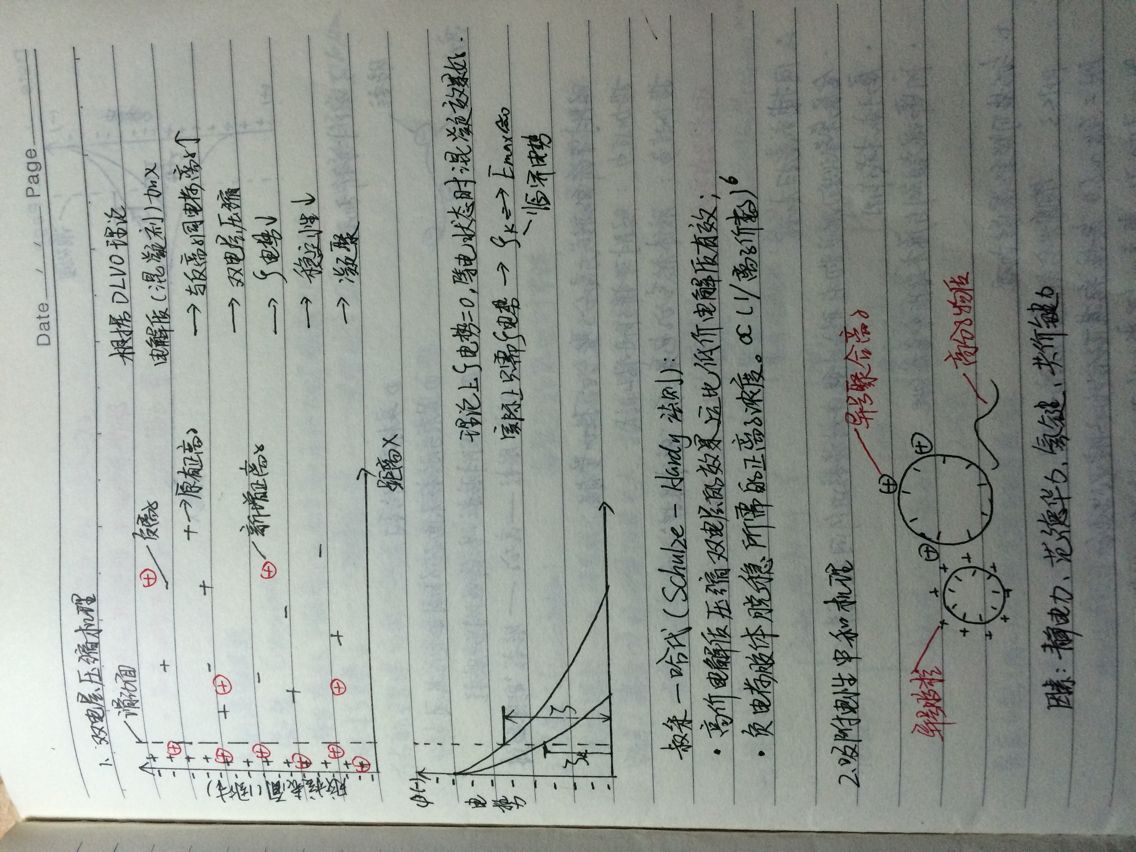 Date
Page
1. 双电层压缩机理
滑动面
负离子
+→原有正离子
新增正离子
距离x
根据DLVO理论
电解质(混凝剂)加入
→与反离子同电荷离子↑
→双电层压缩
→ζ电势↓
→稳定性↓
→凝聚
φ(-)
电势
ζ
ζk
理论上ζ电势=0,等电状态时混凝效果好.
实际上只需ζ电势→ζk=>Emax=0
临界电势
叔采—哈代(Schulze-Hardy法则):
·高价电解质压缩双电层的效果远比低价电解质有效;
·负电荷胶体脱稳所需的正离子浓度。∝(1/离子价数)6
2.吸附电性中和机理
异号胶粒
异号聚合离子
高分子物质
因素:静电力、范德华力、氢键、共价键力